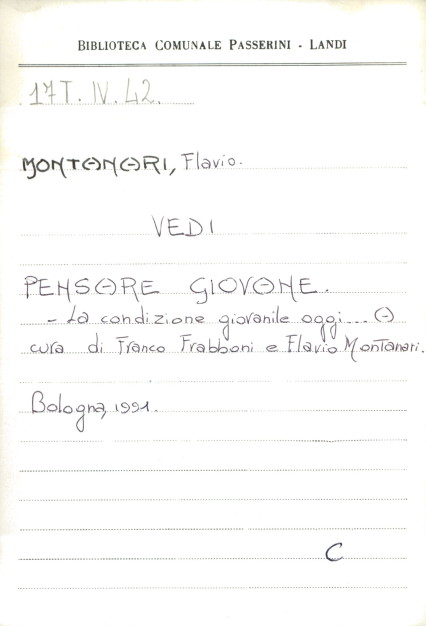 BIBLIOTECA COMUNALE PASSERINI - LANDI
17 T. IV. 42.
MONTANARI, Flavio.
VEDI
PENSARE GIOVANE.
- La condizione giovanile oggi... A
cura di Franco Frabboni e Flavio Montanari.
Bologna, 1991.
C